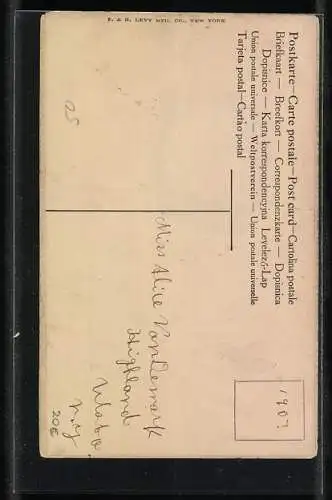 Postkarte—Carte postale—Post card—Cartolina postale
Briefkaart — Brefkort — Correspondenzkarte — Dopisnica
Dopisnice — Karta korrespondencyjna Levelező-Lap
Union postale universale — Weltpostverein — Union postale universelle
Tarjeta postal—Cartao postal
1907
Miss Alice VanDemark
Highland
N.Y
20€